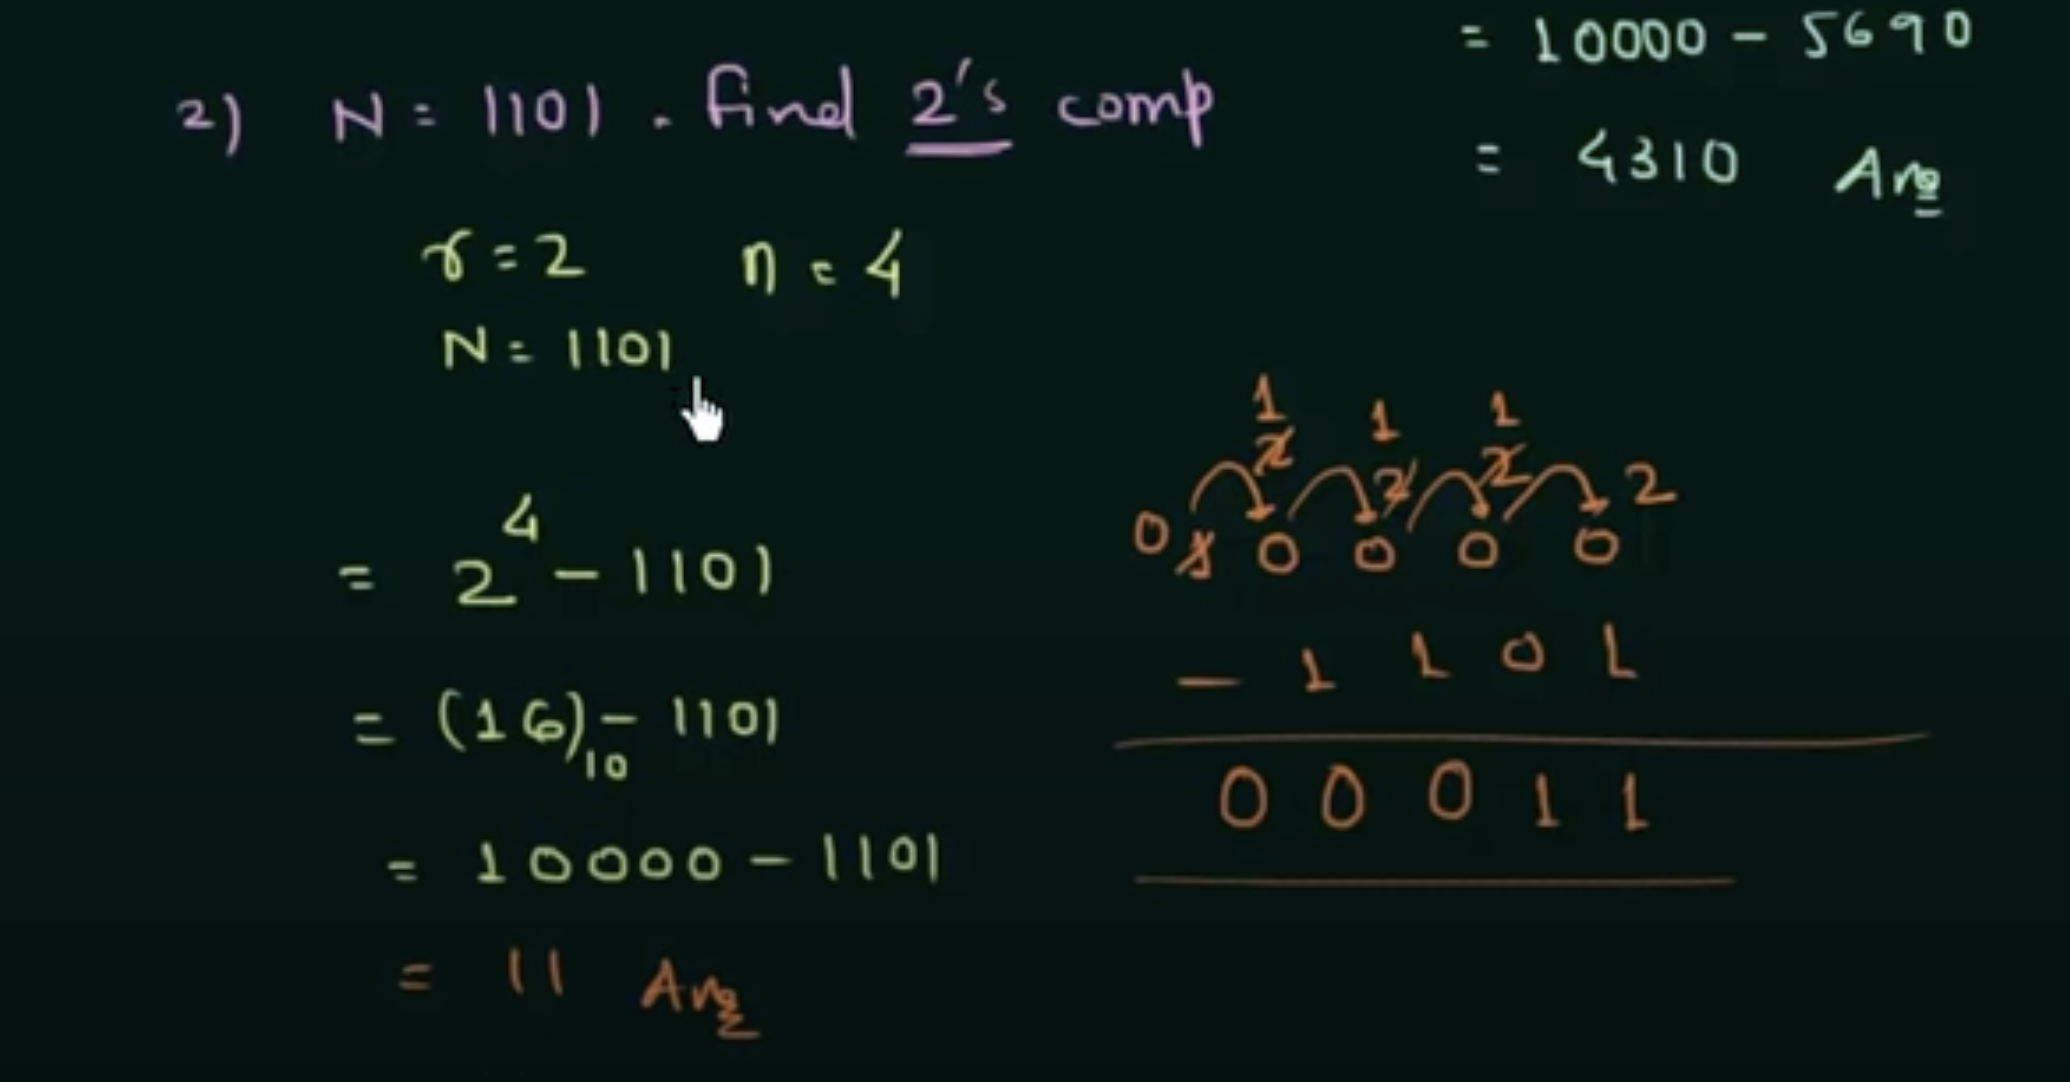 = 10000 - 5690
= 4310 Ans
2) N = 1101 . find 2's comp
r = 2 n = 4
N = 1101
= 2⁴ - 1101
= (16)₁₀ - 1101
= 10000 - 1101
= 11 Ans
1 1 1
2 2 2 2
0 1 0 0 0 0
- 1 1 0 1
0 0 0 1 1